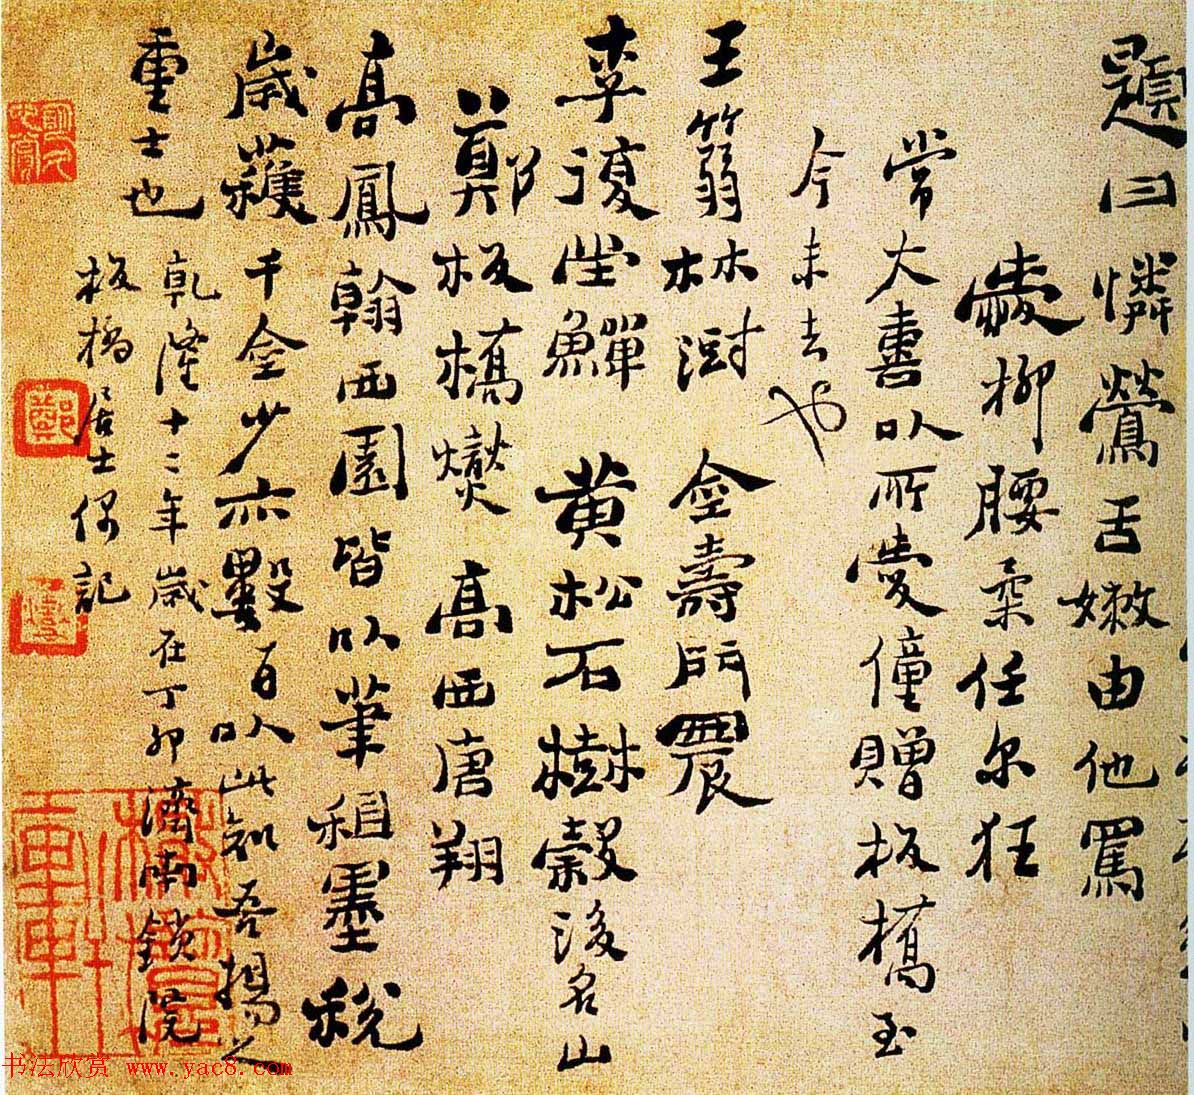 題曰憐鶯舌嫩由他罵
愛柳腰柔任尔狂
常大喜以所愛僮贈板橋至
今未去也
王篛林澍 金壽門農
李復堂鱓 黃松石樹穀後名山
鄭板橋燮 高西唐翔
高鳳翰西園皆以筆租墨稅
歲獲千金少亦數百以此知吾揚之
重士也
乾隆十二年歲在丁卯濟南鎖院
板橋居士偶記
鄭
燮
书法欣赏 www.yac8.com